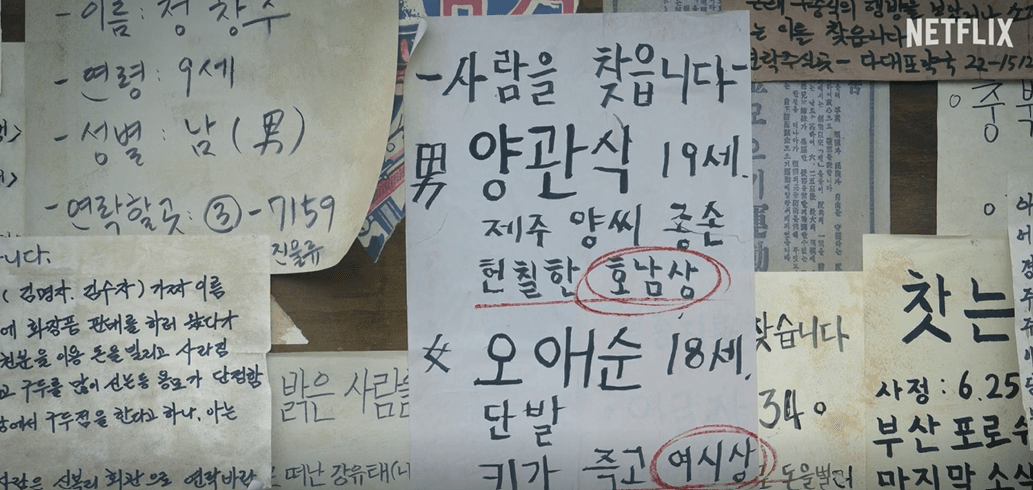 NETFLIX
-이름: 정창수
-연령: 9세
-성별: 남(男)
-연락할곳: ③-7159
진울류
-사람을 찾읍니다-
男 양관식 19세.
제주 양씨 종손
헌칠한 호남상
女 오애순 18세.
단발
키가 족고 여시상
는 이를 찾읍니다
연락주실곳 - 다대포약국 22-1512
운동
니다.
(김명자. 김수자) 가짜 이름
에 화장품 판매를 하러 왔다가
친분을 이용 돈을 빌리고 사라짐
고 구두를 많이 신는등 용모가 단정함
에서 구두점을 한다고 하나, 아는
사람은 신복리 회관으로 연락바람
밝은 사람을
떠난 강유태(
찾습니다
34°
돈을빌려
찾는
사정: 6.25
부산 포로수
마지막 소식